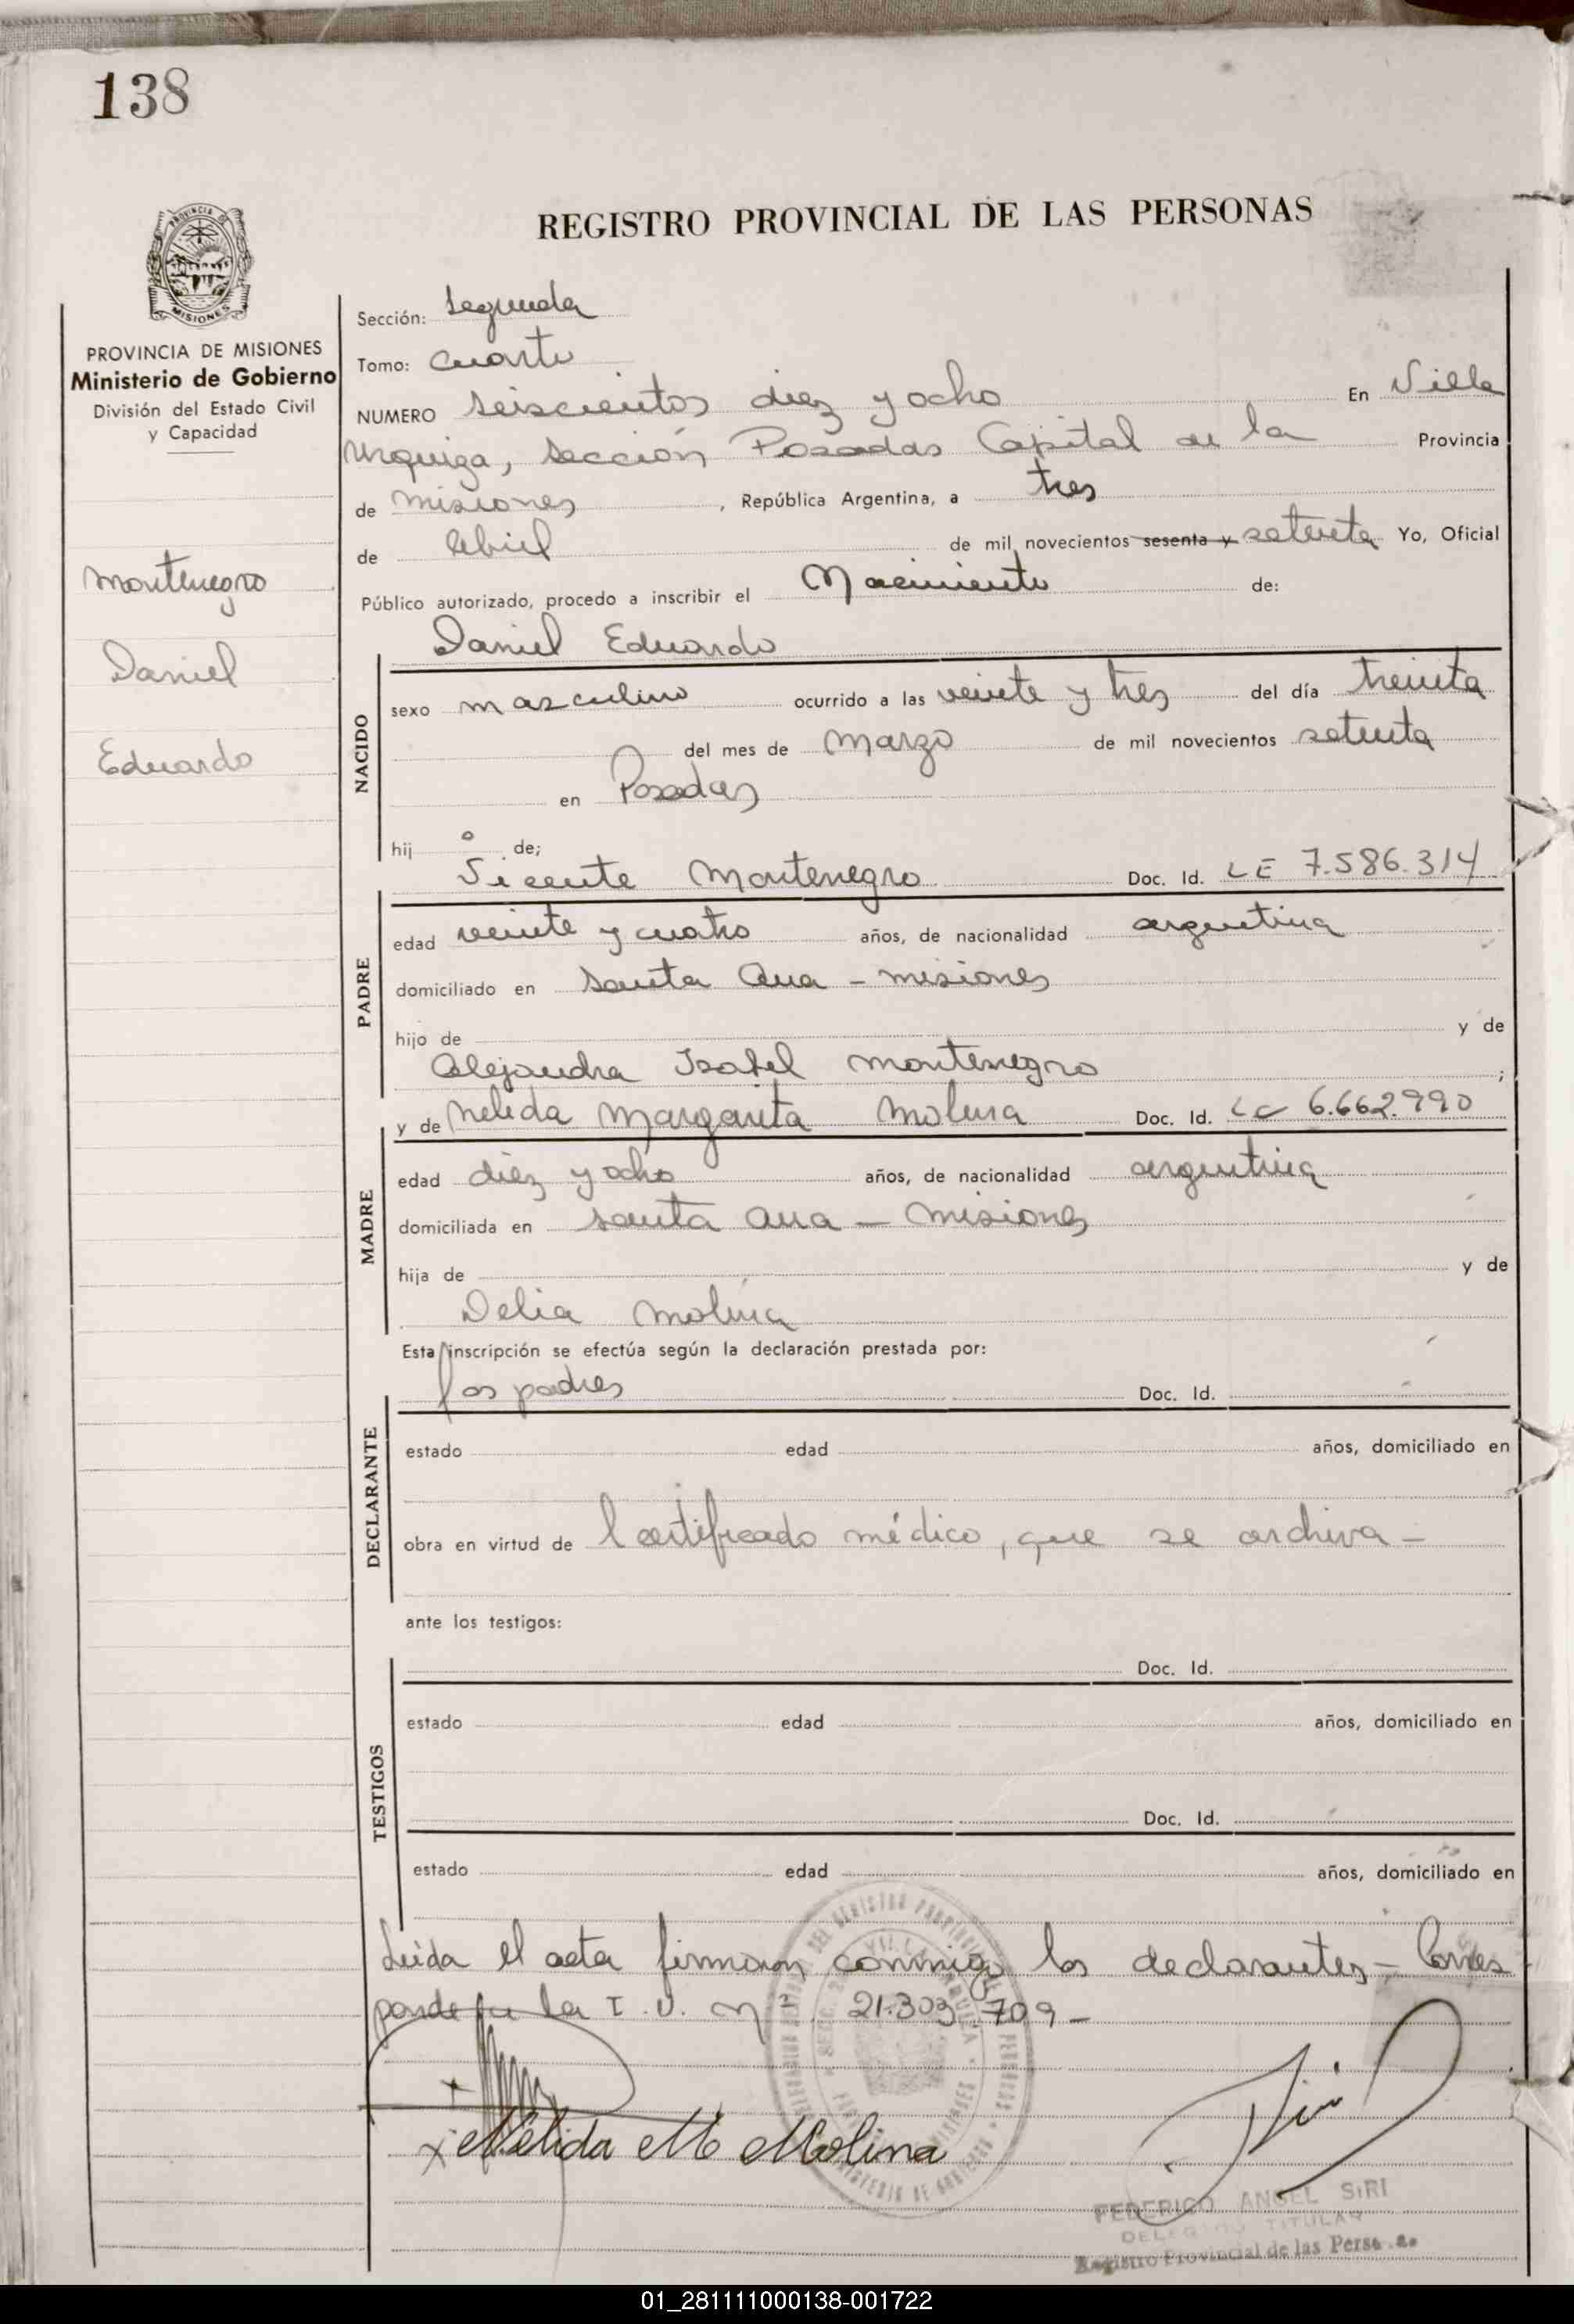 138
REGISTRO PROVINCIAL DE LAS PERSONAS
PROVINCIA DE MISIONES
Ministerio de Gobierno
División del Estado Civil
y Capacidad
Montenegro
Daniel
Eduardo
Sección: Segunda
Tomo: Cuarto
NUMERO seiscientos diez y ocho En Villa
Urquiza, Sección Posadas Capital de la Provincia
de Misiones, República Argentina, a tres
de Abril de mil novecientos sesenta y setenta Yo, Oficial
Público autorizado, procedo a inscribir el Nacimiento de:
Daniel Eduardo
NACIDO
sexo masculino ocurrido a las veinte y tres del día treinta
del mes de Marzo de mil novecientos setenta
en Posadas
hijo de;
Vicente Montenegro Doc. Id. LE 7.586.314
PADRE
edad veinte y cuatro años, de nacionalidad argentina
domiciliado en Santa Ana - Misiones
hijo de y de
Alejandra Isabel Montenegro ;
y de Nelida Margarita Molina Doc. Id. LC 6.662.990
MADRE
edad diez y ocho años, de nacionalidad argentina
domiciliada en Santa Ana - Misiones
hija de y de
Delia Molina
Esta inscripción se efectúa según la declaración prestada por:
los padres Doc. Id.
DECLARANTE
estado edad años, domiciliado en
obra en virtud de Certificado médico, que se archiva -
ante los testigos:
Doc. Id.
TESTIGOS
estado edad años, domiciliado en
Doc. Id.
estado edad años, domiciliado en
Leída el acta firman conmigo los declarantes - Corres
ponde la I.D. nº 21.303.709 -
x Nélida M Molina
FEDERICO ANGEL SIRI
DELEGADO TITULAR
Registro Provincial de las Personas
01_281111000138-001722